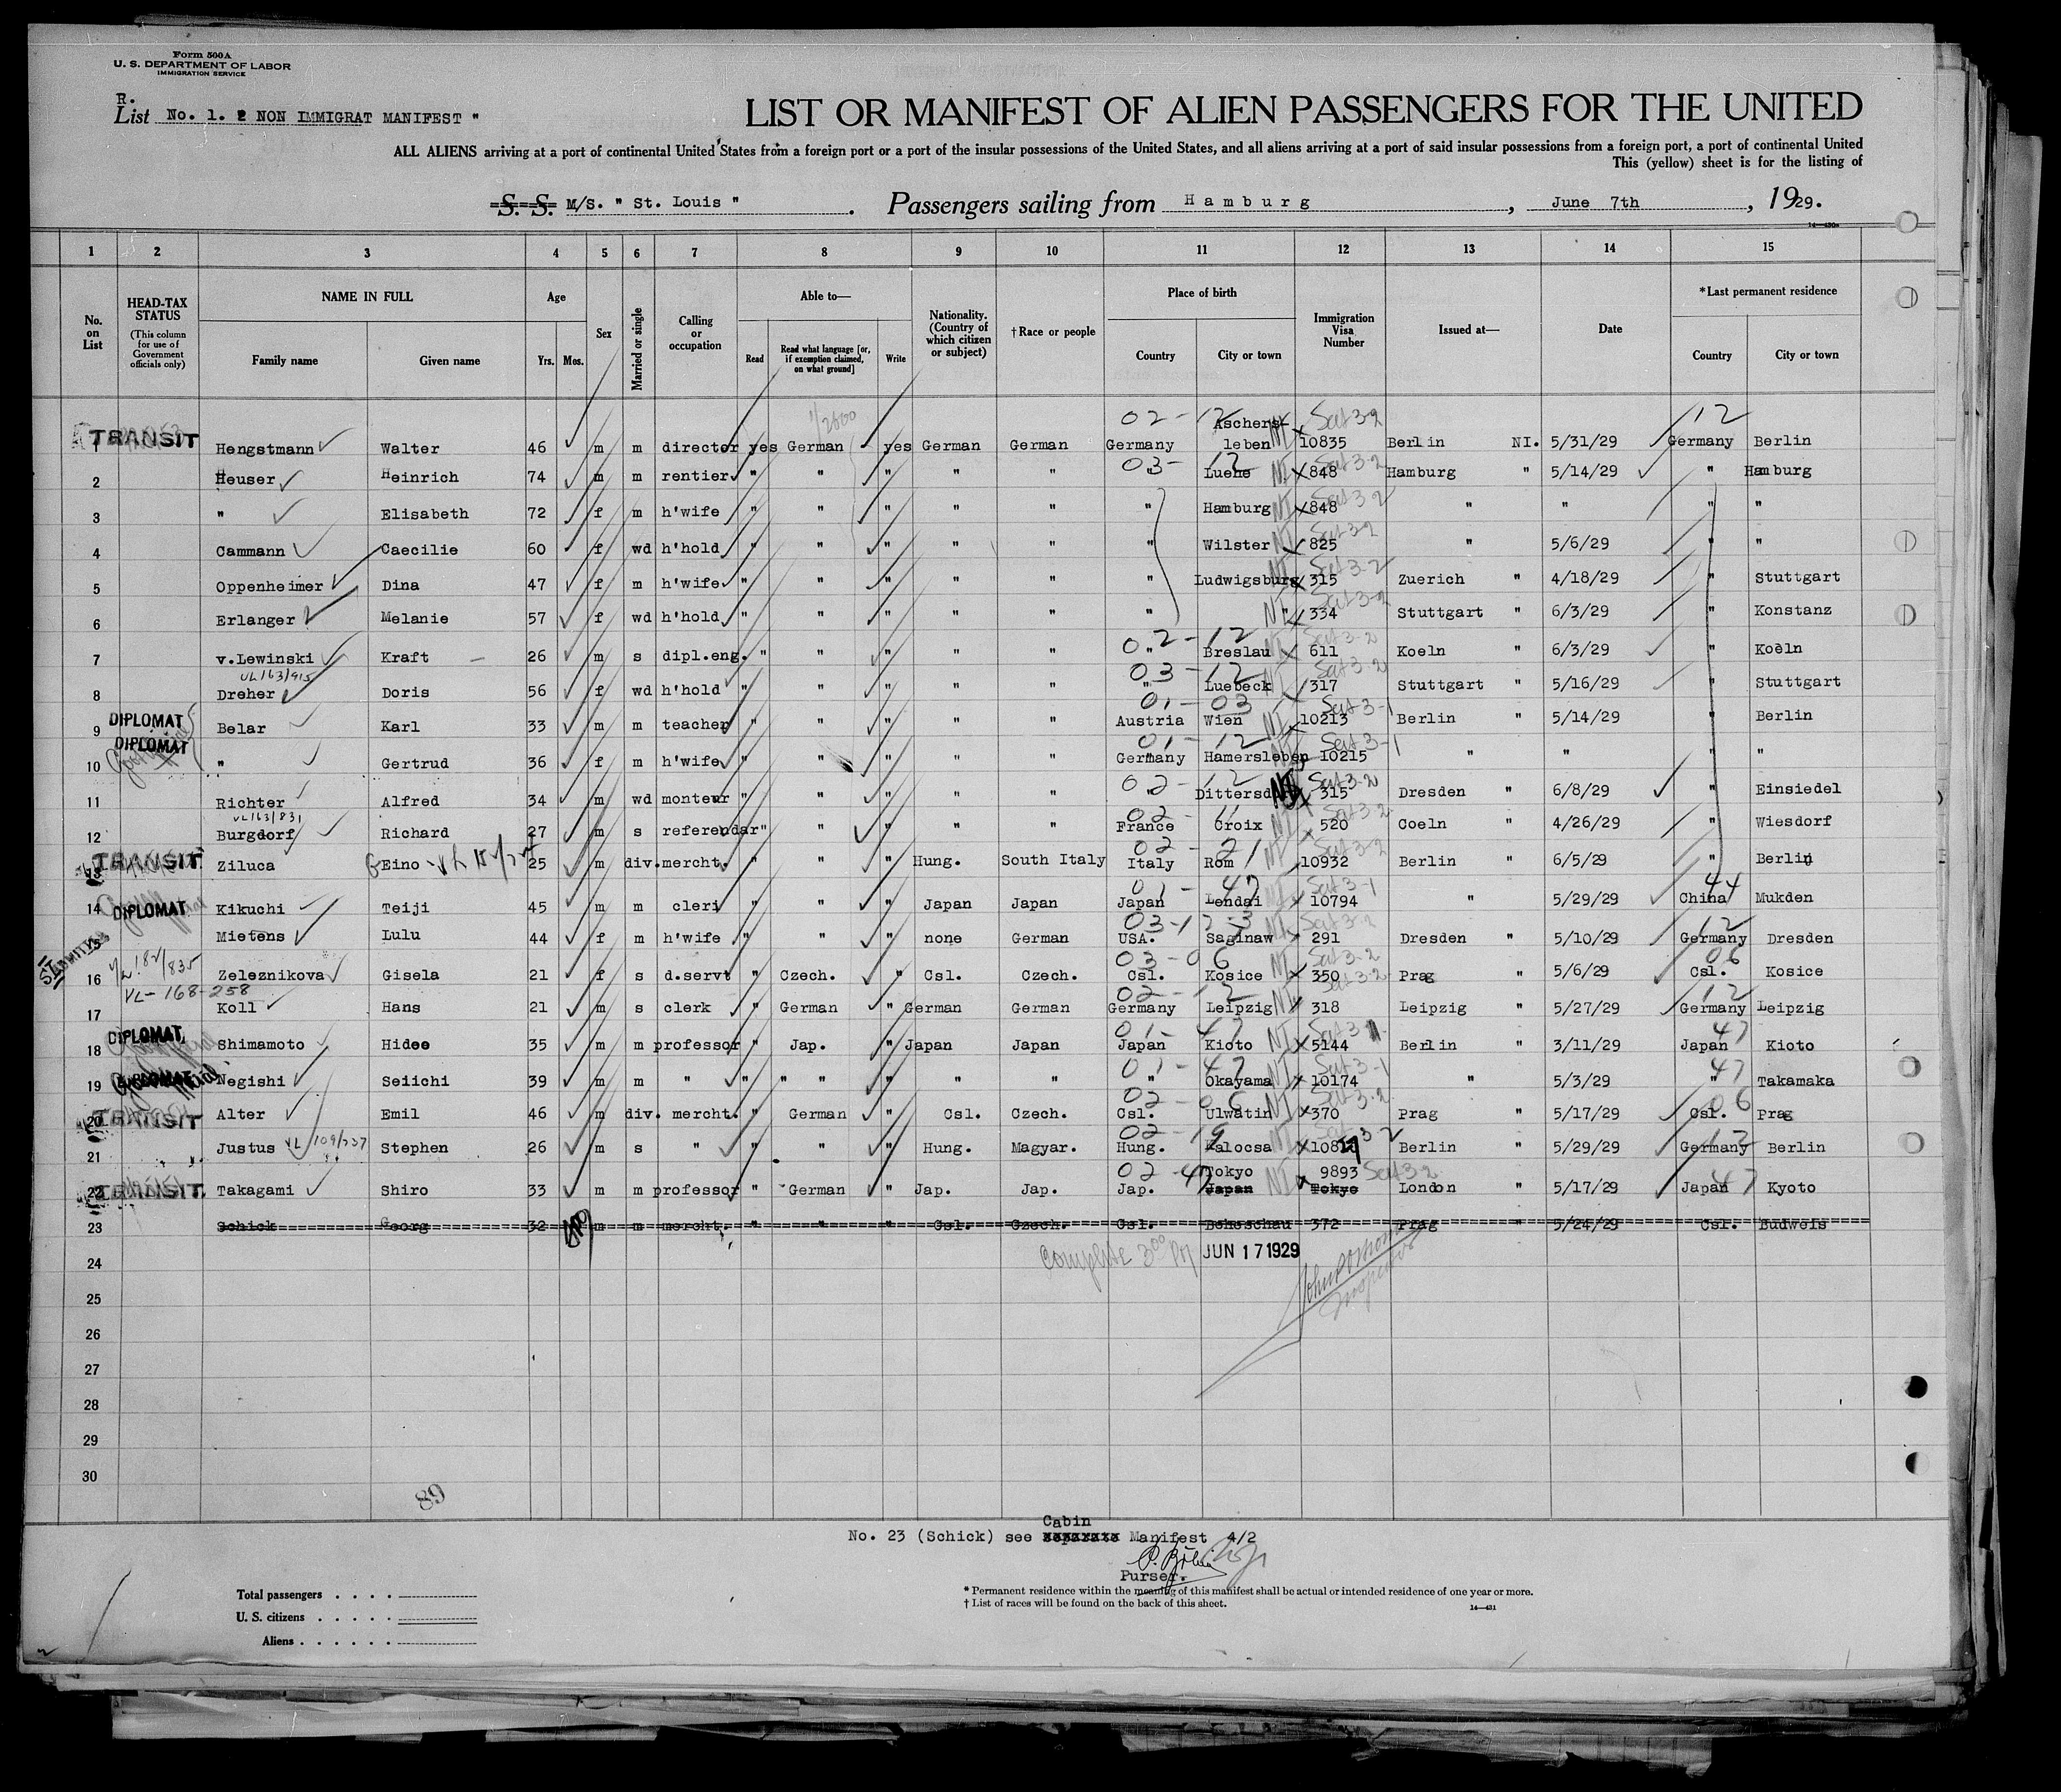 Form 500A
U. S. DEPARTMENT OF LABOR
IMMIGRATION SERVICE
R.
List No. 1. 2 NON IMMIGRAT MANIFEST "
LIST OR MANIFEST OF ALIEN PASSENGERS FOR THE UNITED
ALL ALIENS arriving at a port of continental United States from a foreign port or a port of the insular possessions of the United States, and all aliens arriving at a port of said insular possessions from a foreign port, a port of continental United
This (yellow) sheet is for the listing of
S. S. M/S. " St. Louis " . Passengers sailing from Hamburg , June 7th , 1929.
14—430a
1 2 3 4 5 6 7 8 9 10 11 12 13 14 15
No. on List HEAD-TAX STATUS (This column for use of Government officials only) NAME IN FULL Family name Given name Age Yrs. Mos. Sex Married or single Calling or occupation Able to— Read Read what language [or, if exemption claimed, on what ground] Write Nationality. (Country of which citizen or subject) †Race or people Place of birth Country City or town Immigration Visa Number Issued at— Date *Last permanent residence Country City or town
02-12 Sect 3-2 12
1 TRANSIT Hengstmann Walter 46 m m director yes German yes German German Germany Aschersleben NI 10835 Berlin NI. 5/31/29 Germany Berlin
03-12 Sect 3-2
2 Heuser Heinrich 74 m m rentier " " " " " " Luehe NI 848 Hamburg " 5/14/29 " Hamburg
3 " Elisabeth 72 f m h'wife " " " " " " Hamburg NI 848 " " " "
4 Cammann Caecilie 60 f wd h'hold " " " " " " Wilster NI 825 " 5/6/29 " "
5 Oppenheimer Dina 47 f m h'wife " " " " " " Ludwigsburg 315 Zuerich " 4/18/29 " Stuttgart
6 Erlanger Melanie 57 f wd h'hold " " " " " " " NI 334 Stuttgart " 6/3/29 " Konstanz
02-12 Sect 3-2
7 v.Lewinski Kraft 26 m s dipl.eng. " " " " " " Breslau 611 Koeln " 6/3/29 " Koeln
VL163/915 03-12 Sect 3-2
8 Dreher Doris 56 f wd h'hold " " " " " " Luebeck 317 Stuttgart " 5/16/29 " Stuttgart
01-03 Sect 3-1
9 DIPLOMAT Belar Karl 33 m m teacher " " " " " Austria Wien NI 10213 Berlin " 5/14/29 " Berlin
01-12 Sect 3-1
10 DIPLOMAT " Gertrud 36 f m h'wife " " " " " Germany Hamersleben 10215 " " " "
02-12 Sect 3-2
11 Richter Alfred 34 m wd monteur " " " " " " NI 315 Dresden " 6/8/29 " Einsiedel
VL163/831 02-11 Sect 3-2
12 Burgdorf Richard 27 m s referendar " " " " " France Croix NI 520 Coeln " 4/26/29 " Wiesdorf
02-21 Sect 3-2
13 TRANSIT Ziluca Eino 25 m div. mercht. " " " Hung. South Italy Italy Rom NI 10932 Berlin " 6/5/29 " Berlin
01-47 Sect 3-1 44
14 DIPLOMAT Kikuchi Teiji 45 m m cleri " " " Japan Japan Japan Lendai NI 10794 " 5/29/29 China Mukden
Sect 3-2 12
15 Mietens Lulu 44 f m h'wife " " " none German USA. Saginaw 291 Dresden " 5/10/29 Germany Dresden
03-06 Sect 3-2 06
16 Zeleznikova Gisela 21 f s d.servt " Czech. " Csl. Czech. Csl. Kosice NI 350 Prag " 5/6/29 Csl. Kosice
VL-168-258 02-12 Sect 3-2 12
17 Koll Hans 21 m s clerk " German " German German Germany Leipzig NI 318 Leipzig " 5/27/29 Germany Leipzig
01-47 47
18 DIPLOMAT Shimamoto Hidee 35 m m professor " Jap. " Japan Japan Japan Kioto NI 5144 Berlin " 3/11/29 Japan Kioto
01-47 Sect 3-1 47
19 Negishi Seiichi 39 m m " " " " " " " " Okayama 10174 " 5/3/29 " Takamaka
02-06 Sect 3-2 06
20 TRANSIT Alter Emil 46 m div. mercht. " German " Csl. Czech. Csl. Ulwatin NI 370 Prag " 5/17/29 Csl. Prag
02-19 12
21 Justus VL 109/737 Stephen 26 m s " " " " Hung. Magyar. Hung. Kalocsa NI Berlin " 5/29/29 Germany Berlin
02-47 Tokyo 9893 Sect 3-2 47
22 TRANSIT Takagami Shiro 33 m m professor " German " Jap. Jap. Jap. Japan NI Tokyo London " 5/17/29 Japan Kyoto
23 Schick Georg 32 m m mercht. " " " Csl. Czech. Csl. Beheschau 372 Prag " 5/24/29 Csl. Budweis
24 Complete 3 00 PM JUN 17 1929
25 Inspector
26
27
28
29
30
89
Cabin
No. 23 (Schick) see separate Manifest 4/2
Purser.
Total passengers . . . .
U. S. citizens . . . . .
Aliens . . . . . .
* Permanent residence within the meaning of this manifest shall be actual or intended residence of one year or more.
† List of races will be found on the back of this sheet.
14—431